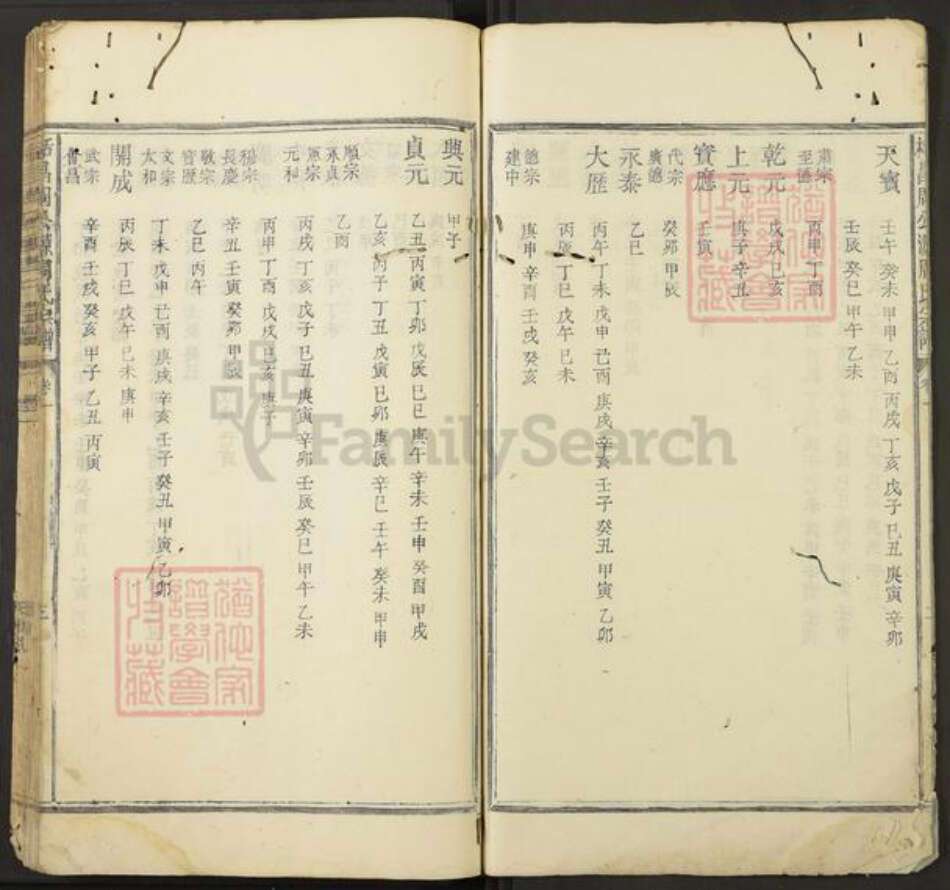 天寳
壬午 癸未 甲申 乙酉 丙戌 丁亥 戊子 巳丑 庚寅 辛卯
壬辰 癸巳 甲午 乙未
肅宗 至德
丙申 丁酉
乾元
戊戌 巳亥
上元
庚子 辛丑
寳應
壬寅
代宗 廣德
癸卯 甲辰
永泰
乙巳
大歴
丙午 丁未 戊申 己酉 庚戌 辛亥 壬子 癸丑 甲寅 乙卯
丙辰 丁巳 戊午 巳未
德宗 建中
庚申 辛酉 壬戌 癸亥
興元
甲子
貞元
乙丑 丙寅 丁卯 戊辰 巳巳 庚午 辛未 壬申 癸酉 甲戌
乙亥 丙子 丁丑 戊寅 巳卯 庚辰 辛巳 壬午 癸未 甲申
順宗 永貞
乙酉
憲宗 元和
丙戌 丁亥 戊子 巳丑 庚寅 辛卯 壬辰 癸巳 甲午 乙未
丙申 丁酉 戊戌 巳亥 庚子
穆宗 長慶
辛丑 壬寅 癸卯 甲辰
敬宗 寳歴
乙巳 丙午
文宗 太和
丁未 戊申 己酉 庚戌 辛亥 壬子 癸丑 甲寅 乙卯
開成
丙辰 丁巳 戊午 巳未 庚申
武宗 會昌
辛酉 壬戌 癸亥 甲子 乙丑 丙寅
卷一
三
譜學會
收藏
FamilySearch